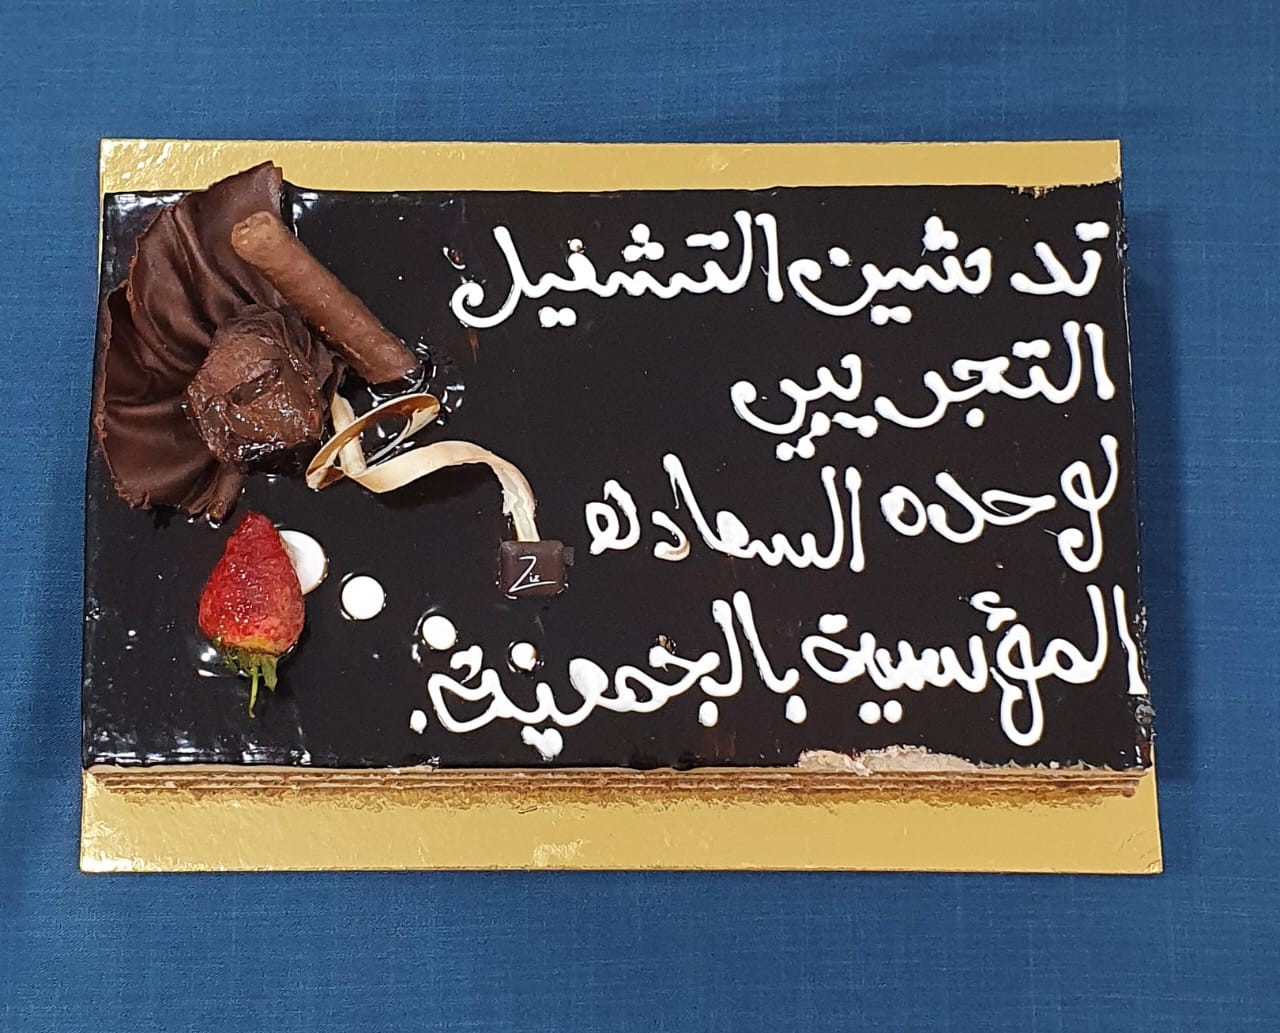 تدشين التشغيل
التجريبي
لوحده السعاده
المؤسسية بالجمعية.